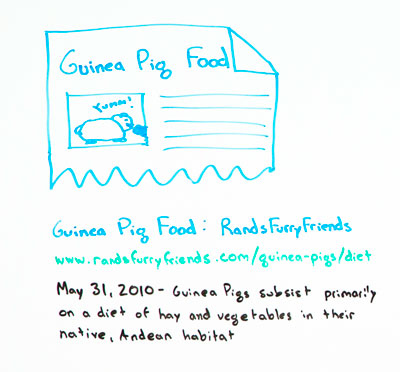 Guinea Pig Food
Yumm!
Guinea Pig Food: RandsFurryFriends
www.randsfurryfriends.com/guinea-pigs/diet
May 31, 2010 - Guinea Pigs subsist primarily
on a diet of hay and vegetables in their
native, Andean habitat